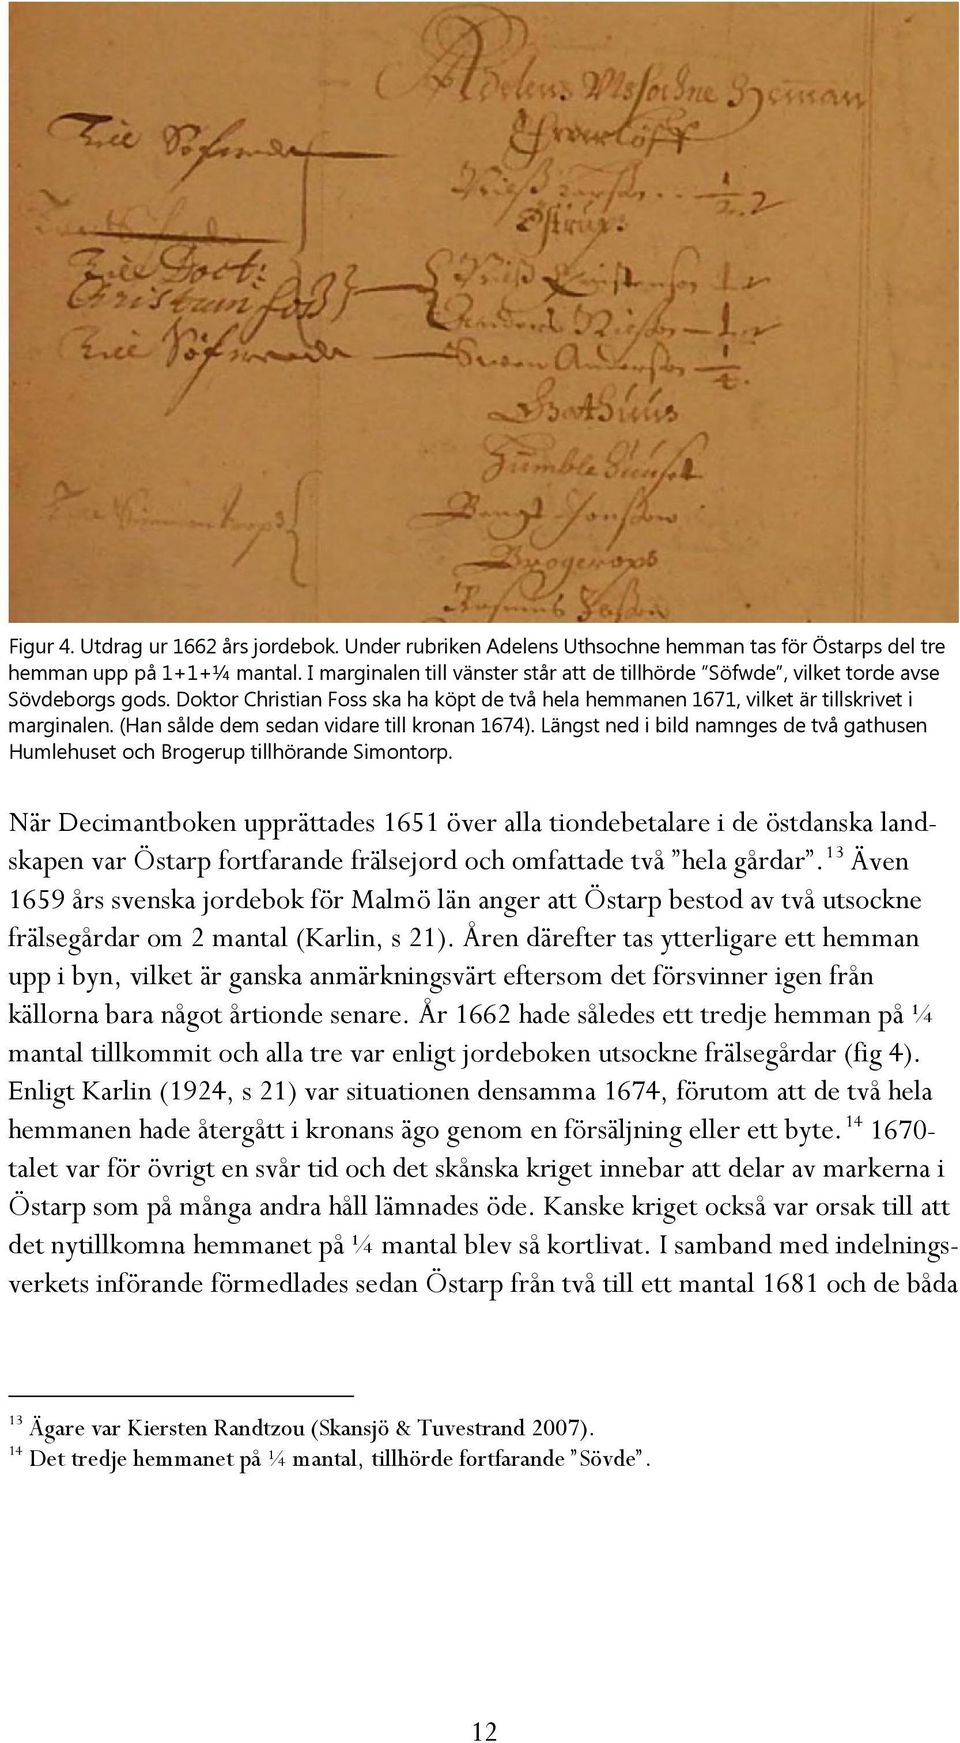 Adelens Uthsochne Heman
Till Söfwede
Öfwerlöff
Nielß Larßon .. 1/2
Östrup:
Till Doct:
Christian foß
Nielß Kristenson 1
Anders Nielßon 1
Till Söfwede
Swen Anderßon 1/4.
Gathuus
Humble huuset
Till Simmentorp
Bengt Jonßon
Brogerops
Rasmus
Figur 4. Utdrag ur 1662 års jordebok. Under rubriken Adelens Uthsochne hemman tas för Östarps del tre
hemman upp på 1+1+¼ mantal. I marginalen till vänster står att de tillhörde ”Söfwde”, vilket torde avse
Sövdeborgs gods. Doktor Christian Foss ska ha köpt de två hela hemmanen 1671, vilket är tillskrivet i
marginalen. (Han sålde dem sedan vidare till kronan 1674). Längst ned i bild namnges de två gathusen
Humlehuset och Brogerup tillhörande Simontorp.
När Decimantboken upprättades 1651 över alla tiondebetalare i de östdanska land-
skapen var Östarp fortfarande frälsejord och omfattade två ”hela gårdar”.13 Även
1659 års svenska jordebok för Malmö län anger att Östarp bestod av två utsockne
frälsegårdar om 2 mantal (Karlin, s 21). Åren därefter tas ytterligare ett hemman
upp i byn, vilket är ganska anmärkningsvärt eftersom det försvinner igen från
källorna bara något årtionde senare. År 1662 hade således ett tredje hemman på ¼
mantal tillkommit och alla tre var enligt jordeboken utsockne frälsegårdar (fig 4).
Enligt Karlin (1924, s 21) var situationen densamma 1674, förutom att de två hela
hemmanen hade återgått i kronans ägo genom en försäljning eller ett byte.14 1670-
talet var för övrigt en svår tid och det skånska kriget innebar att delar av markerna i
Östarp som på många andra håll lämnades öde. Kanske kriget också var orsak till att
det nytillkomna hemmanet på ¼ mantal blev så kortlivat. I samband med indelnings-
verkets införande förmedlades sedan Östarp från två till ett mantal 1681 och de båda
13 Ägare var Kiersten Randtzou (Skansjö & Tuvestrand 2007).
14 Det tredje hemmanet på ¼ mantal, tillhörde fortfarande ”Sövde”.
12